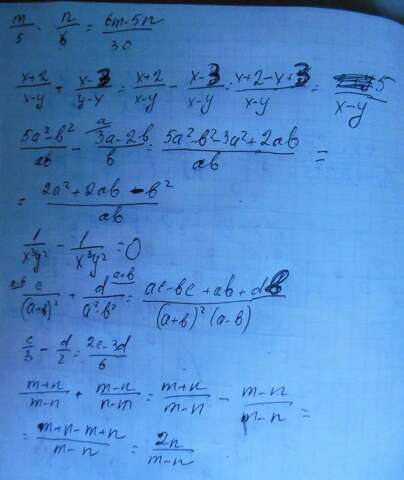 m/5 - n/6 = (6m-5n)/30
(x+2)/(x-y) + (x-3)/(y-x) = (x+2)/(x-y) - (x-3)/(x-y) = (x+2-x+3)/(x-y) = 5/(x-y)
(5a²-b²)/ab - ᵃ(3a-2b)/b = (5a²-b²-3a²+2ab)/ab =
= (2a²+2ab-b²)/ab
1/(x³y²) - 1/(x³y²) = 0
ᵃ⁻ᵇc/(a+b)² + dᵃ⁺ᵇ/(a²-b²) = (ac-bc+ab+db)/((a+b)²(a-b))
c/3 - d/2 = (2c-3d)/6
(m+n)/(m-n) + (m-n)/(n-m) = (m+n)/(m-n) - (m-n)/(m-n) =
= (m+n-m+n)/(m-n) = 2n/(m-n)